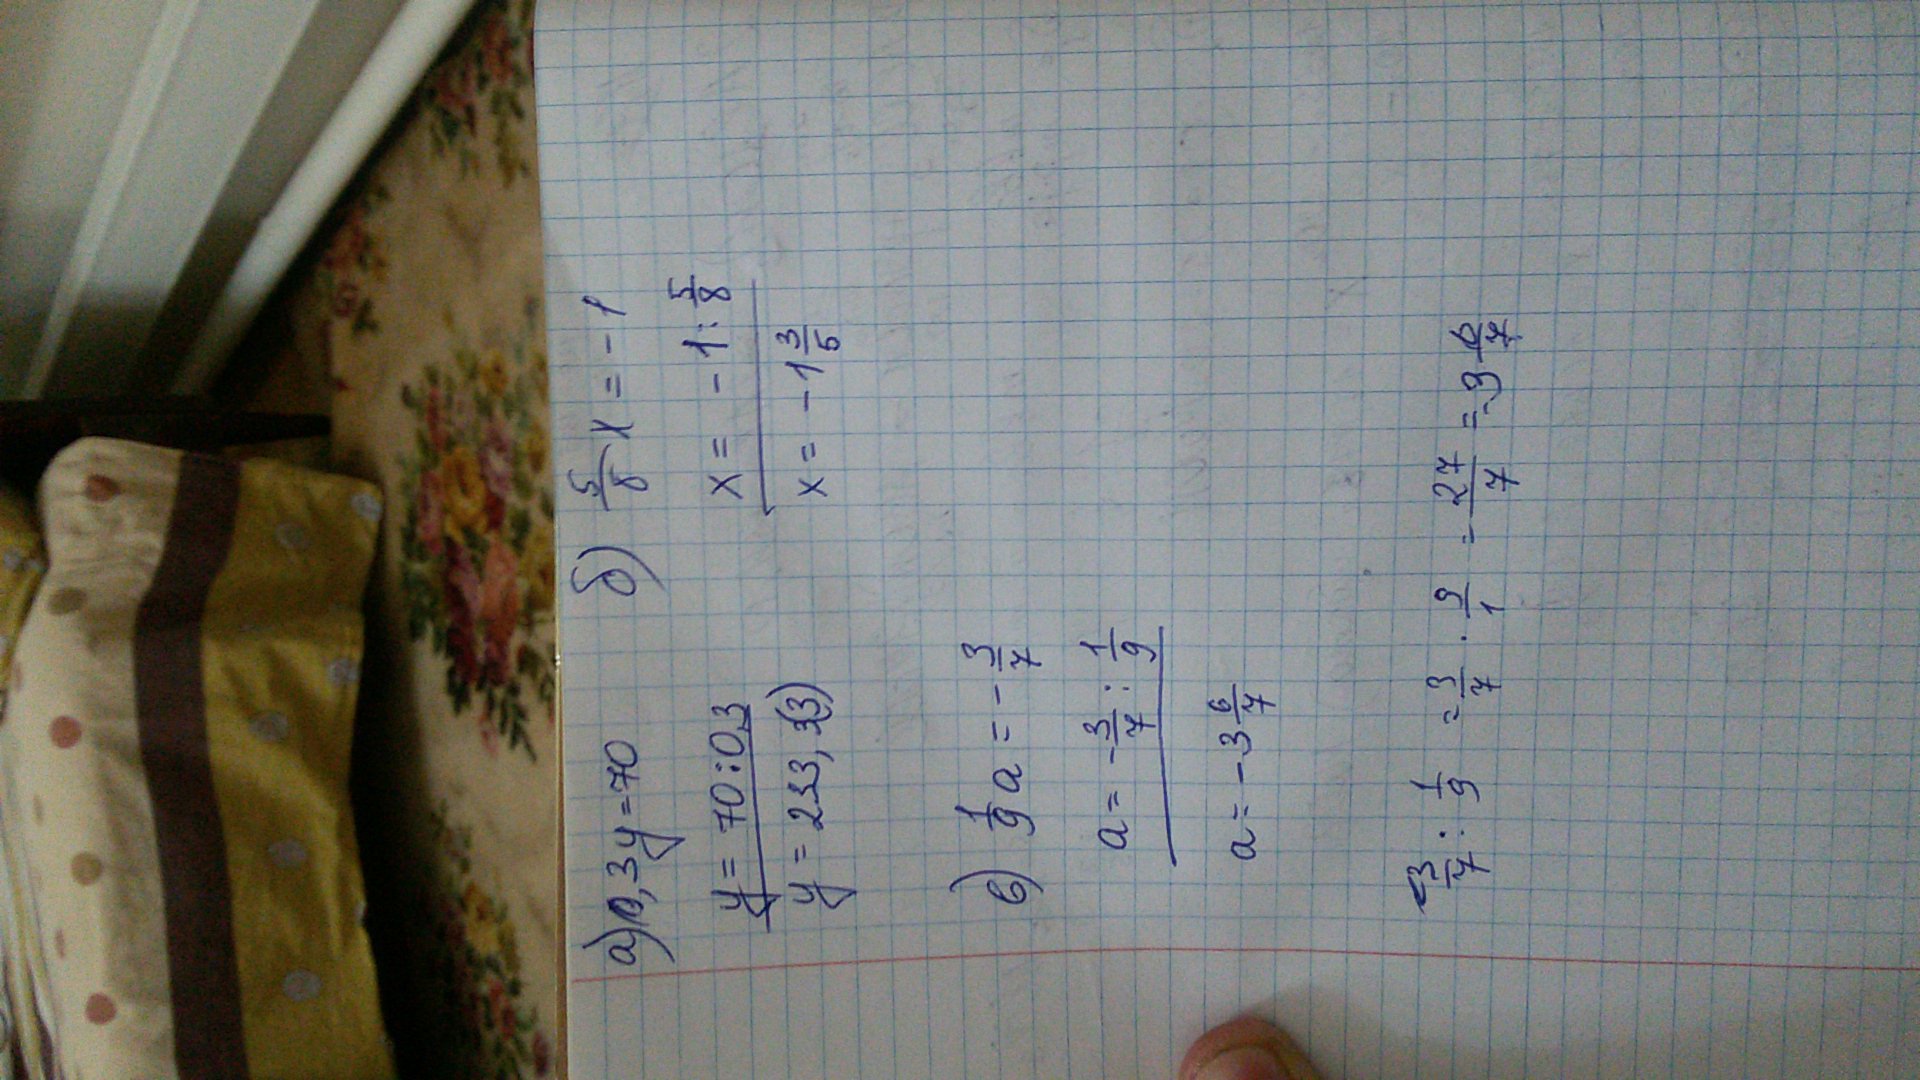 а) 0,3y=70
y = 70:0,3
y = 233,3(3)
б) 5/8 x = -1
x = -1 : 5/8
x = -1 3/5
в) 1/9 a = - 3/7
a = - 3/7 : 1/9
a = -3 6/7
- 3/7 : 1/9 = - 3/7 · 9/1 = - 27/7 = -3 6/7